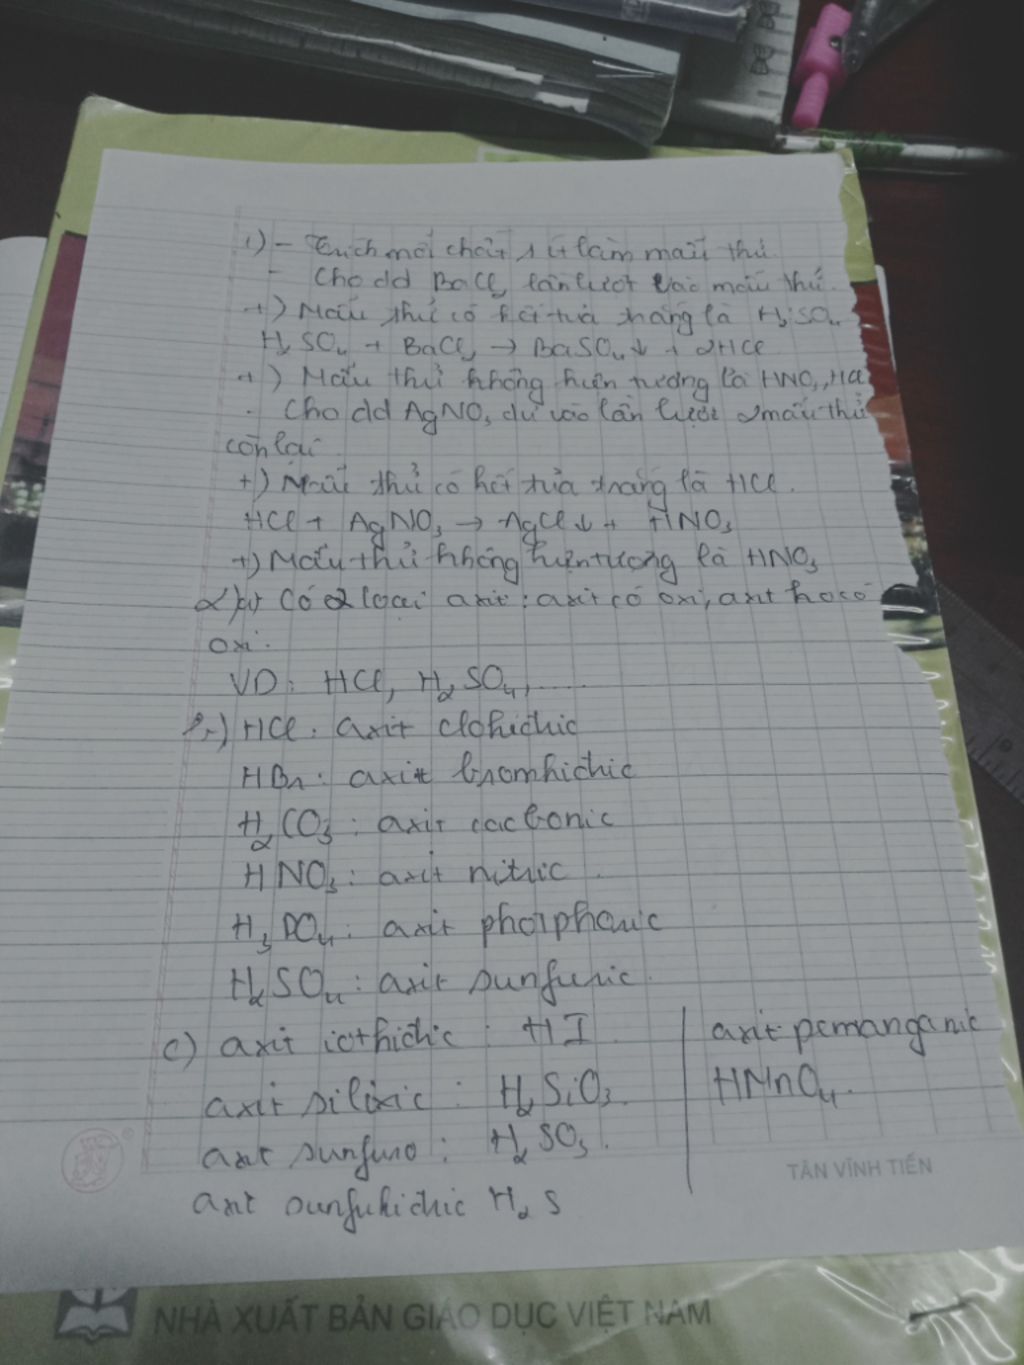 1) - Trích mỗi chất 1 ít làm mẫu thử.
- Cho dd BaCl2 lần lượt vào mẫu thử.
+) Mẫu thử có kết tủa trắng là H2SO4
H2SO4 + BaCl2 → BaSO4↓ + 2HCl
+) Mẫu thử không hiện tượng là HNO3, HCl
. Cho dd AgNO3 dư vào lần lượt 2 mẫu thử
còn lại
+) Mẫu thử có kết tủa trắng là HCl.
HCl + AgNO3 → AgCl↓ + HNO3
+) Mẫu thử không hiện tượng là HNO3
2) a) Có 2 loại axit: axit có oxi, axit ko có
oxi.
VD: HCl, H2SO4,.....
b) HCl: axit clohidric
HBr: axit bromhidric
H2CO3: axit cacbonic
HNO3: axit nitric.
H3PO4: axit photphoric
H2SO4: axit sunfuric.
c) axit iothidric: HI.
axit silixic: H2SiO3.
axit sunfurơ: H2SO3.
axit sunfuhidric H2S
axit pemanganic
HMnO4.
TÂN VĨNH TIẾN
NHÀ XUẤT BẢN GIÁO DỤC VIỆT NAM